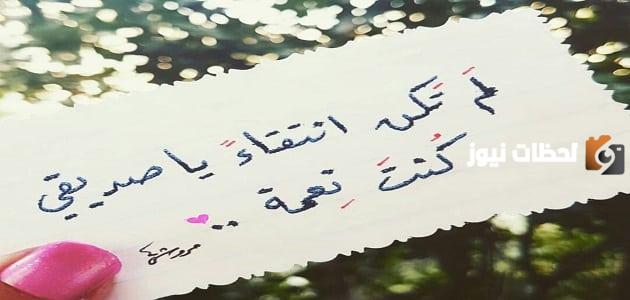 لَم تَكن انتقاءً ياصديقي
كُنتَ نِعمة ..
لحظات نيوز